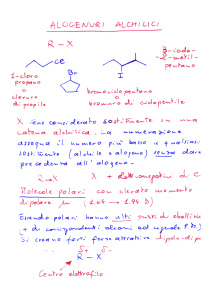 ALOGENURI ALCHILICI
R - X
3-iodo-
-2-metil-
pentano
Cl
Br
I
1-cloro
propano
o
cloruro
di propile
bromociclopentano
o
bromuro di ciclopentile
X viene considerato sostituente in una
catena alchilica. La numerazione
assegna il numero più basso a qualsiasi
sostituente (alchile o alogeno) senza dare
precedenza all'alogeno.
R→X X + elettronegativi di C
Molecole polari con elevato momento
di dipolo μ (1.64 → 1.94 D)
Essendo polari hanno alti punti di ebollizio
(+ di corrispondenti alcani ad uguale P.M.)
Si creano forti forze attrattive dipolo-dipo
δ+ δ-
R - X
Centro elettrofilo